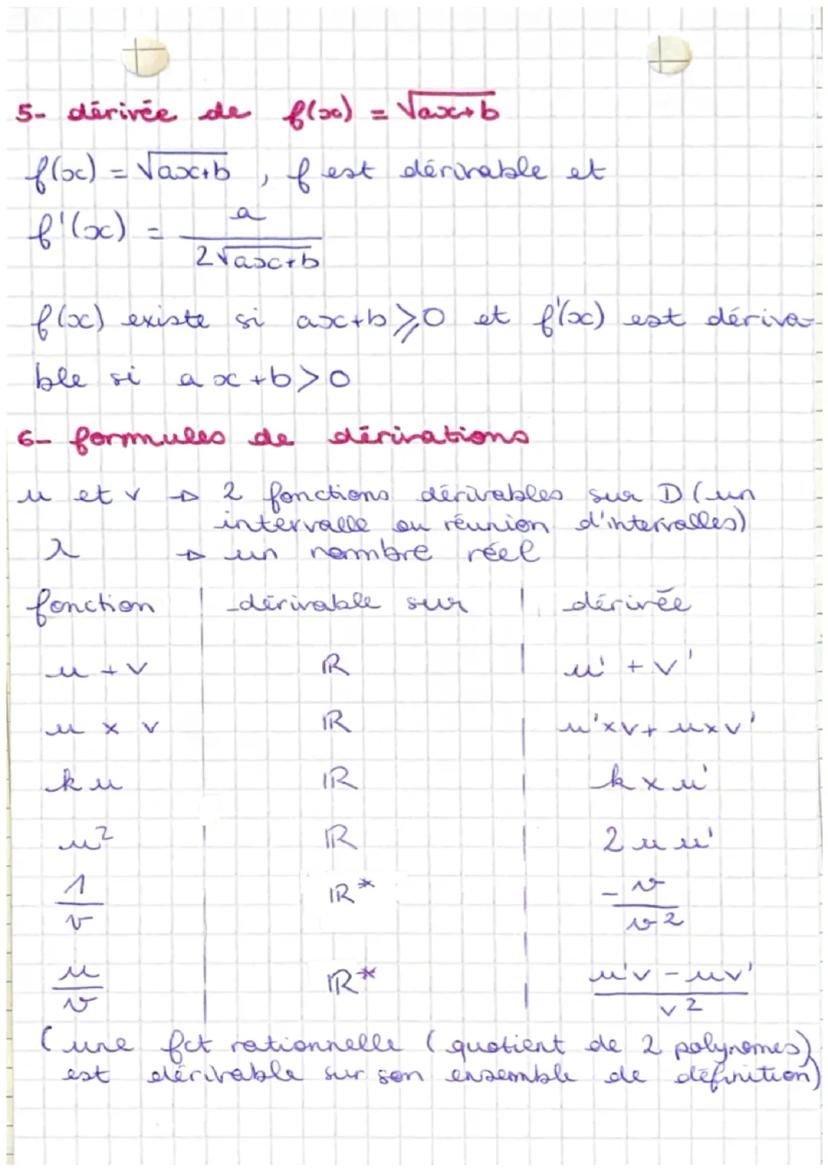 5- dérivée de f(x) = √ax+b
f(x) = √ax+b , f est dérivable et
f'(x) = a / 2√ax+b
f(x) existe si ax+b ⩾ 0 et f'(x) est dériva-
ble si ax+b > 0
6- formules de dérivations
u et v → 2 fonctions dérivables sur D (un
intervalle ou réunion d'intervalles)
λ → un nombre réel
fonction | dérivable sur | dérivée
u + v | ℝ | u' + v'
u × v | ℝ | u'×v + u×v'
k u | ℝ | k × u'
u² | ℝ | 2 u u'
1/v | ℝ* | -v/v²
u/v | ℝ* | u'v - uv' / v²
(une fct rationnelle (quotient de 2 polynomes)
est dérivable sur son ensemble de définition)